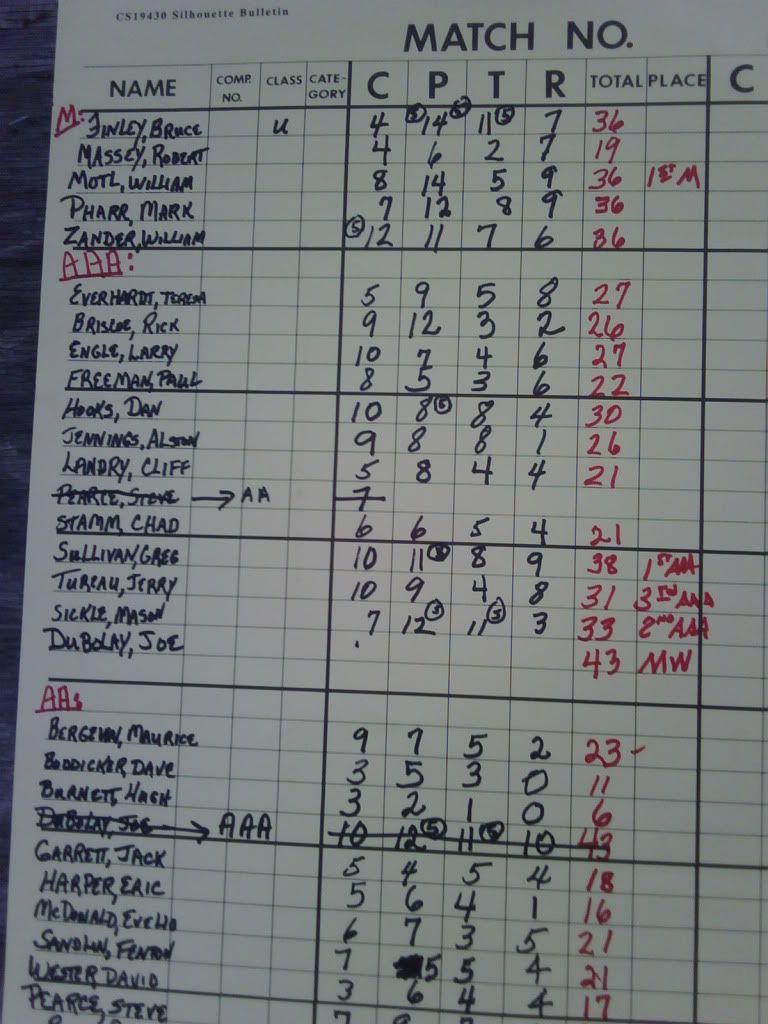 CS19430 Silhouette Bulletin
MATCH NO.
NAME COMP. NO. CLASS CATE-GORY C P T R TOTAL PLACE C
M:
FINLEY, BRUCE U 4 (5) 14 (5) 11 (5) 7 36
MASSEY, ROBERT 4 6 2 7 19
MOTL, WILLIAM 8 14 5 9 36 1ST M
PHARR, MARK 7 12 8 9 36
ZANDER, WILLIAM (5) 12 11 7 6 36
AAA:
EVERHARDT, TERESA 5 9 5 8 27
BRISCOE, RICK 9 12 3 2 26
ENGLE, LARRY 10 7 4 6 27
FREEMAN, PAUL 8 5 3 6 22
HOOKS, DAN 10 8 (5) 8 4 30
JENNINGS, ALSTON 9 8 8 1 26
LANDRY, CLIFF 5 8 4 4 21
PEARCE, STEVE → AA 7
STAMM, CHAD 6 6 5 4 21
SULLIVAN, GREG 10 11 (5) 8 9 38 1ST AAA
TUREAU, JERRY 10 9 4 8 31 3RD AAA
SICKLE, MASON 7 12 (5) 11 (5) 3 33 2ND AAA
DUBOLAY, JOE 43 MW
AA:
MAURICE 9 7 5 2 23 -
BODDICKER, DAVE 3 5 3 0 11
BURNETT, HUGH 3 2 1 0 6
DUBOLAY, JOE → AAA 10 12 (5) 11 (5) 10 43
GARRETT, JACK 5 4 5 4 18
HARPER, ERIC 5 6 4 1 16
MCDONALD, 6 7 3 5 21
SANDLIN, FENTON 7 5 5 4 21
WESTER DAVID 3 6 4 4 17
PEARCE, STEVE 7